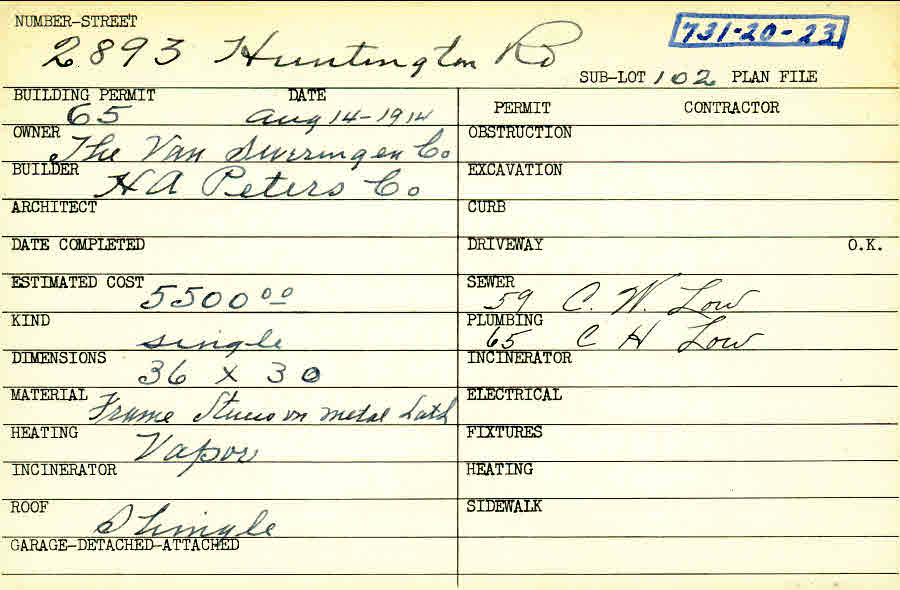 NUMBER-STREET
2893 Huntington Rd
731-20-23
SUB-LOT 102 PLAN FILE
BUILDING PERMIT DATE
65 Aug 14-1914
OWNER
The Van Sweringen Co
BUILDER
H A Peters Co
ARCHITECT
DATE COMPLETED
ESTIMATED COST
5500 00
KIND
single
DIMENSIONS
36 x 30
MATERIAL
Frame Stucco on metal Lath
HEATING
Vapor
INCINERATOR
ROOF
Shingle
GARAGE-DETACHED-ATTACHED
PERMIT CONTRACTOR
OBSTRUCTION
EXCAVATION
CURB
DRIVEWAY O.K.
SEWER
59 C. W. Low
PLUMBING
65 C H Low
INCINERATOR
ELECTRICAL
FIXTURES
HEATING
SIDEWALK